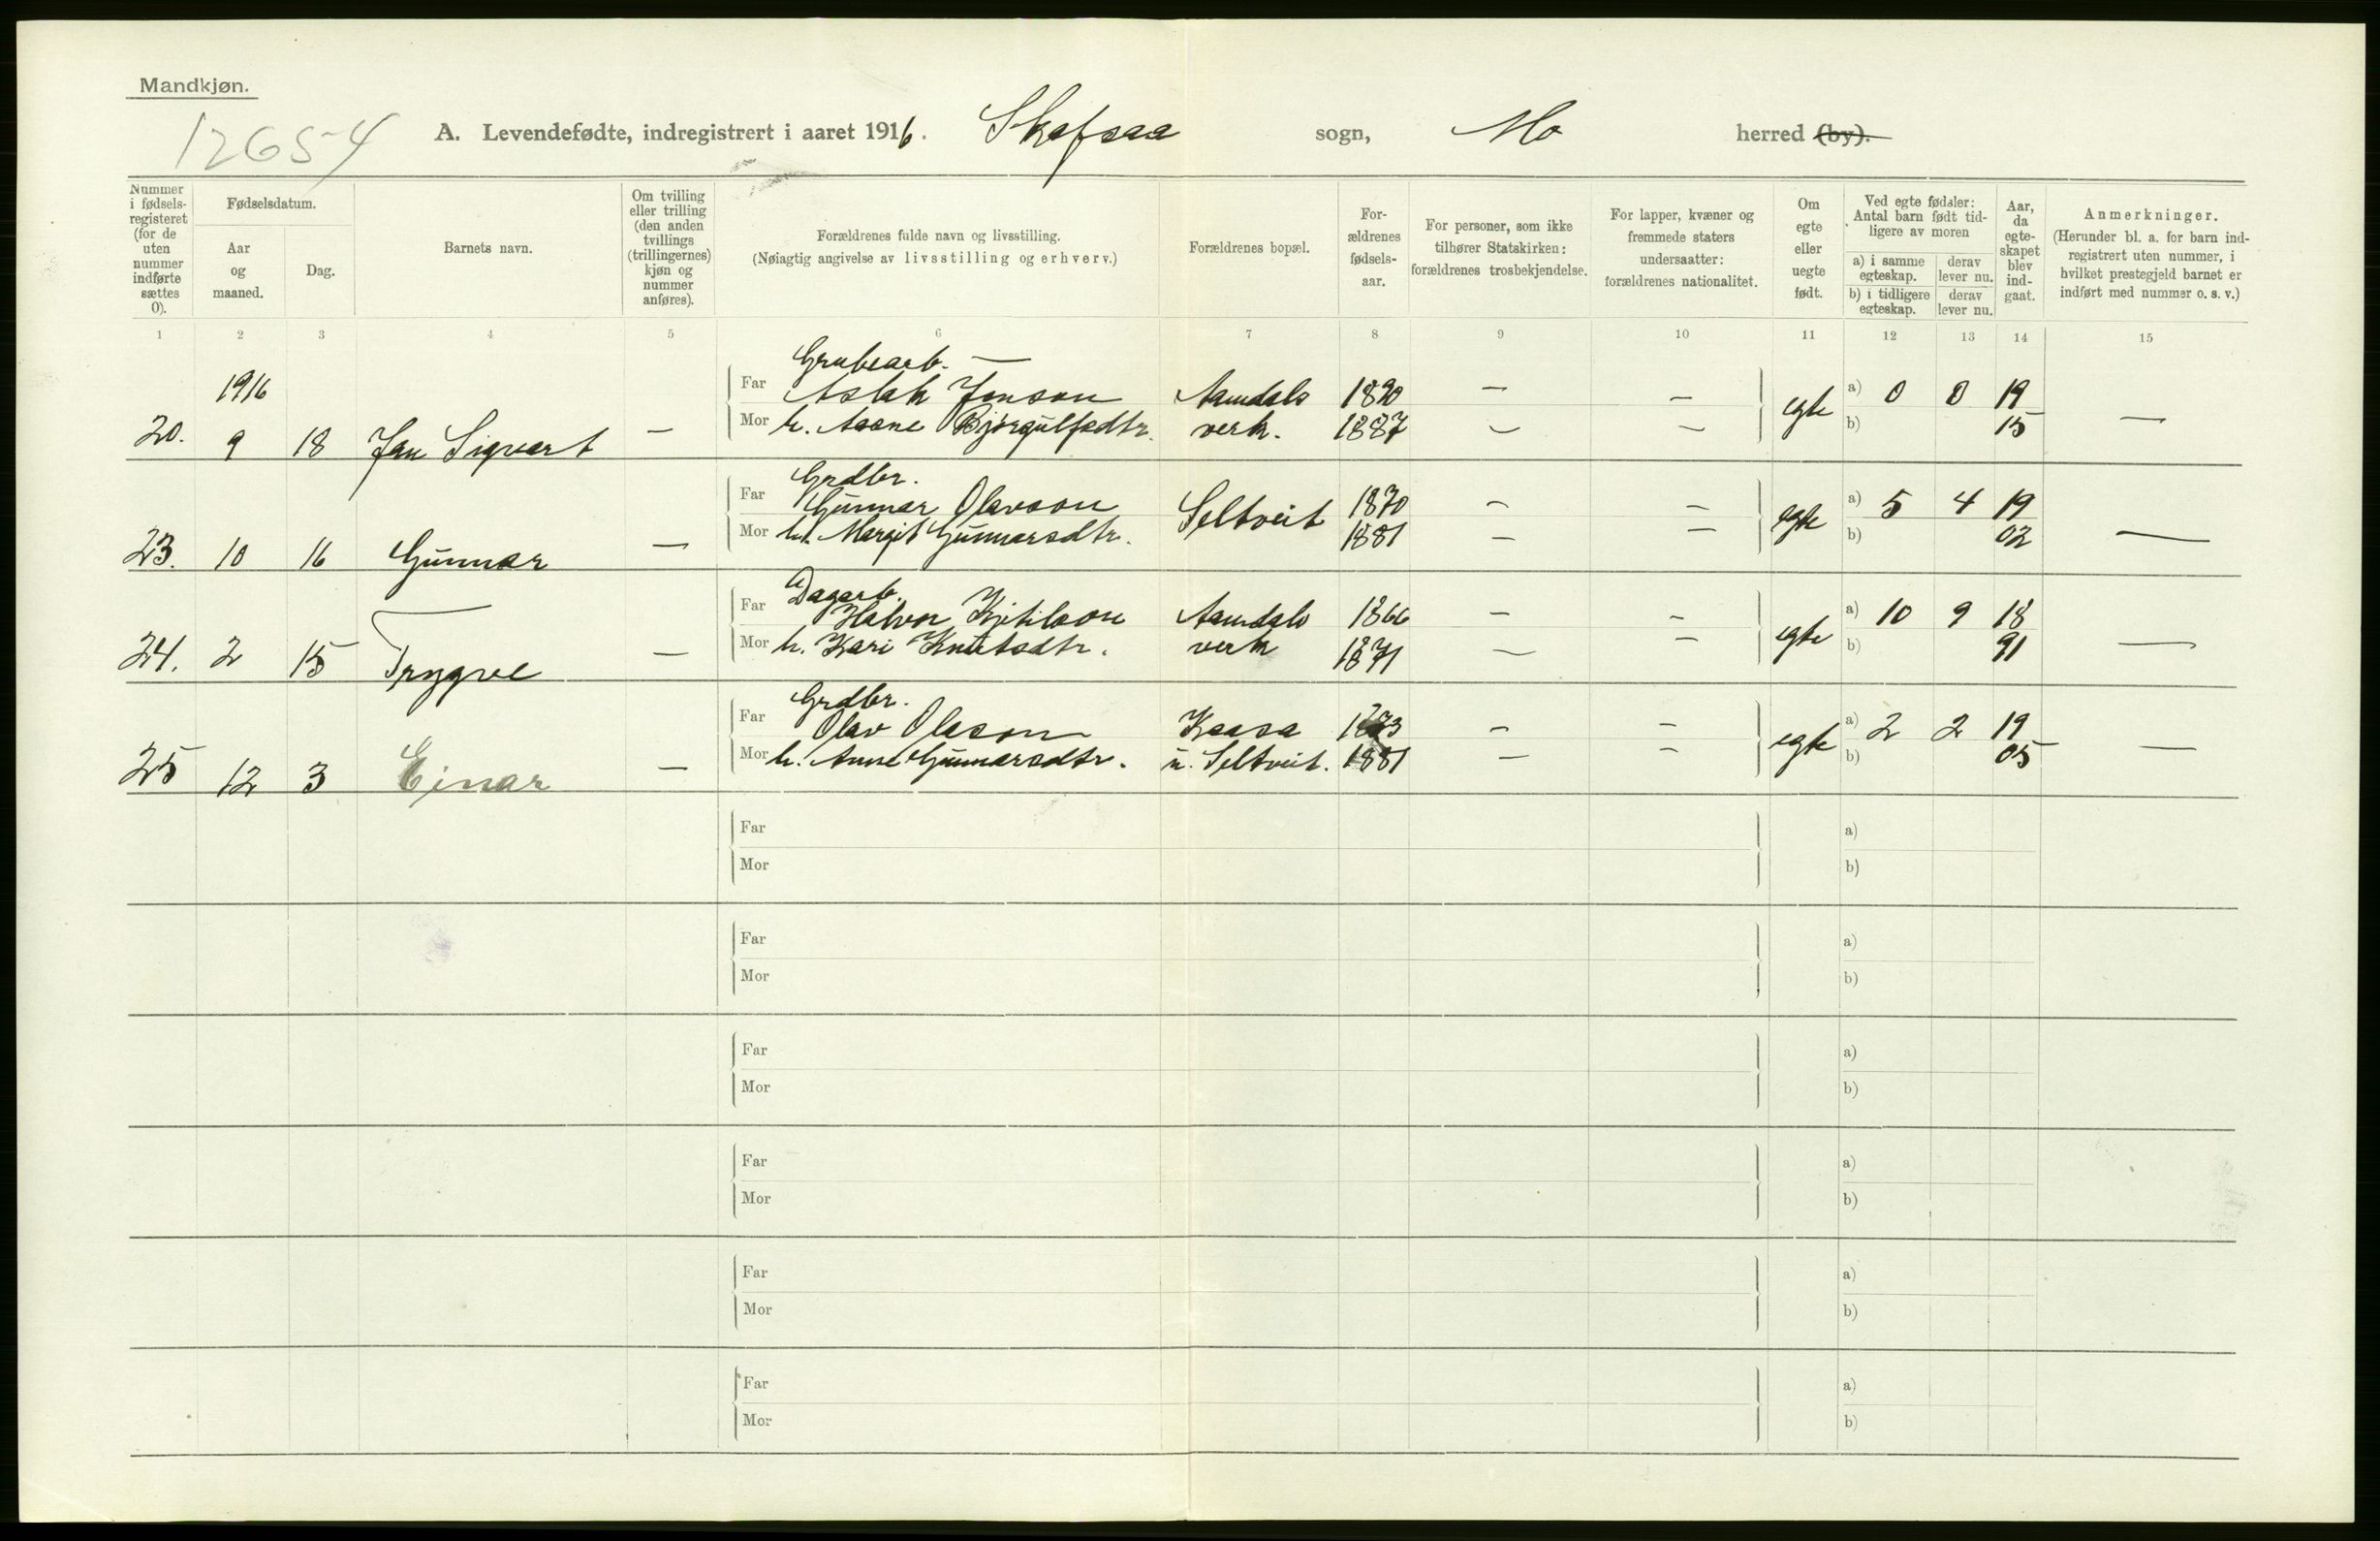 Mandkjøn.
12654
A. Levendefødte, indregistrert i aaret 1916. Skafsaa sogn, Mo herred (by).
Nummer i fødsels-registeret (for de uten nummer indførte sættes 0).
Fødselsdatum.
Aar og maaned.
Dag.
Barnets navn.
Om tvilling eller trilling (den anden tvillings (trillingernes) kjøn og nummer anføres).
Forældrenes fulde navn og livsstilling.
(Nøiagtig angivelse av livsstilling og erhverv.)
Forældrenes bopæl.
For-ældrenes fødsels-aar.
For personer, som ikke tilhører Statskirken: forældrenes trosbekjendelse.
For lapper, kvæner og fremmede staters undersaatter: forældrenes nationalitet.
Om egte eller uegte født.
Ved egte fødsler: Antal barn født tid-ligere av moren
a) i samme egteskap. derav lever nu.
b) i tidligere egteskap. derav lever nu.
Aar, da egte-skapet blev ind-gaat.
Anmerkninger.
(Herunder bl. a. for barn ind-registrert uten nummer, i hvilket prestegjeld barnet er indført med nummer o. s. v.)
1 2 3 4 5 6 7 8 9 10 11 12 13 14 15
1916
Grubearb. —
Far Aslak Jonson Aamdals 1890 — — a) 0 0 19
20. 9 18 Jan Sigvart — Mor h. Aasne Bjørgulfsdtr. verk. 1887 — — egte b) 15 —
Grdbr.
Far Gunnar Olavson Seltveit 1870 — — a) 5 4 19
23. 10 16 Gunnar — Mor h. Margit Gunnarsdtr. 1881 — — egte b) 02 —
Dagarb.
Far Halvor Kjetilson Aamdals 1866 — — a) 10 9 18
24. 2 15 Trygve — Mor h. Kari Knutsdtr. verk 1871 — — egte b) 91 —
Grdbr.
Far Olav Olason Kaasa 1873 — — a) 2 2 19
25 12 3 Einar — Mor h. Anne Gunnarsdtr. u. Seltveit. 1881 — — egte b) 05 —
Far a)
Mor b)
Far a)
Mor b)
Far a)
Mor b)
Far a)
Mor b)
Far a)
Mor b)
Far a)
Mor b)